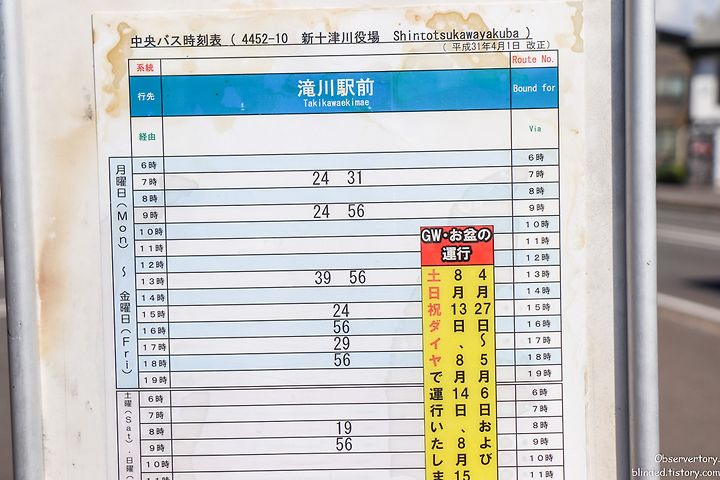 中央バス時刻表 ( 4452-10 新十津川役場 Shintotsukawayakuba )
( 平成31年4月1日 改正)
系統 Route No.
行先 滝川駅前 Bound for
Takikawaekimae
経由 Via
月曜日(Mon) ～ 金曜日(Fri)
6時 6時
7時 24 31 7時
8時 8時
9時 24 56 9時
10時 10時
11時 11時
12時 12時
13時 39 56 13時
14時 14時
15時 24 15時
16時 56 16時
17時 29 17時
18時 56 18時
19時 19時
土曜(Sat)・日曜(
6時 6時
7時 7時
8時 19 8時
9時 56 9時
10時 10時
11時 11時
GW・お盆の
運行
4月27日～5月6日および
8月13日、8月14日、8月15
土日祝ダイヤで運行いたしま
Observertory.
blinded.tistory.com